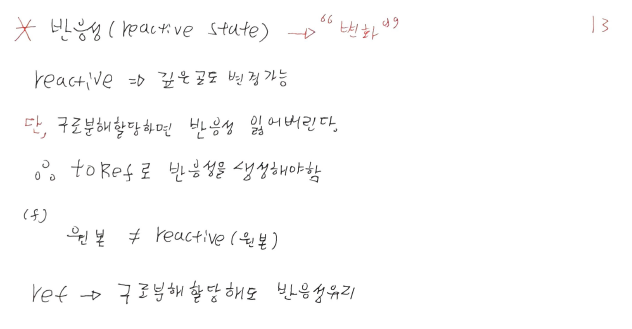 * 반응성(reactive state) → "변화" 13
reactive ⇒ 깊은곳도 변경가능
단, 구로분해할당하면 반응성 잃어버린다,
∴ toRef로 반응성을 생성해야함
(f)
원본 ≠ reactive(원본)
ref → 구로분해할당해도 반응성유리